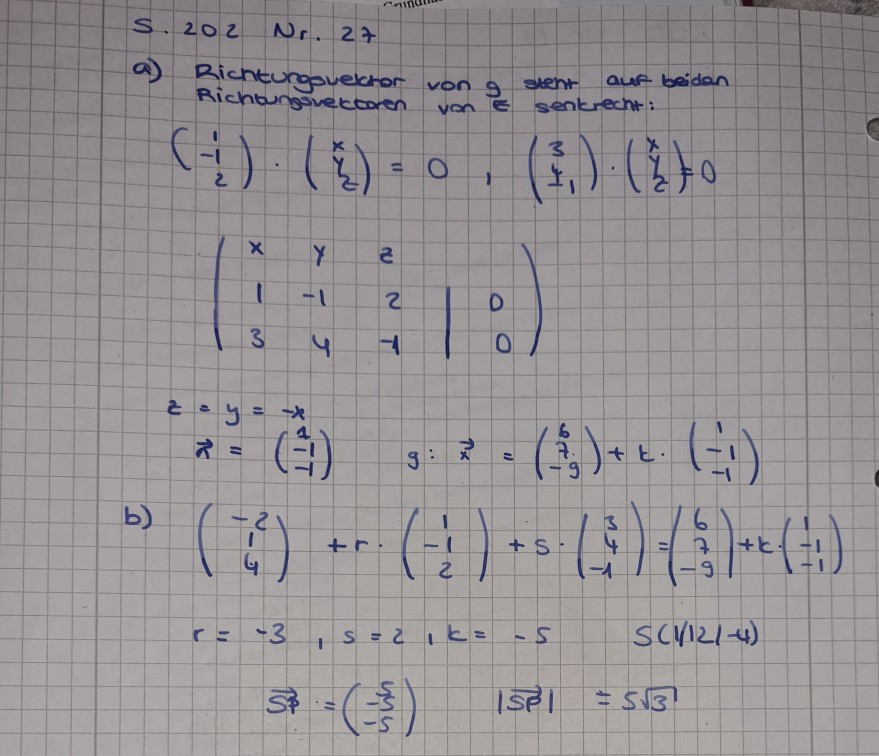 S. 202 Nr. 27
a) Richtungsvektor von g steht auf beiden
Richtungsvektoren von E senkrecht:
(1 -1 2) · (x y z) = 0 , (3 4 -1) · (x y z) = 0
x y z
1 -1 2 | 0
3 4 -1 | 0
z = y = -x
x⃗ = (1 -1 -1) g: x⃗ = (6 7 -9) + k · (1 -1 -1)
b) (-2 1 4) + r · (1 -1 2) + s · (3 4 -1) = (6 7 -9) + k · (1 -1 -1)
r = -3 , s = 2 , k = -5 S(1/12/-4)
SP⃗ = (5 -5 -5) |SP⃗| = 5√3